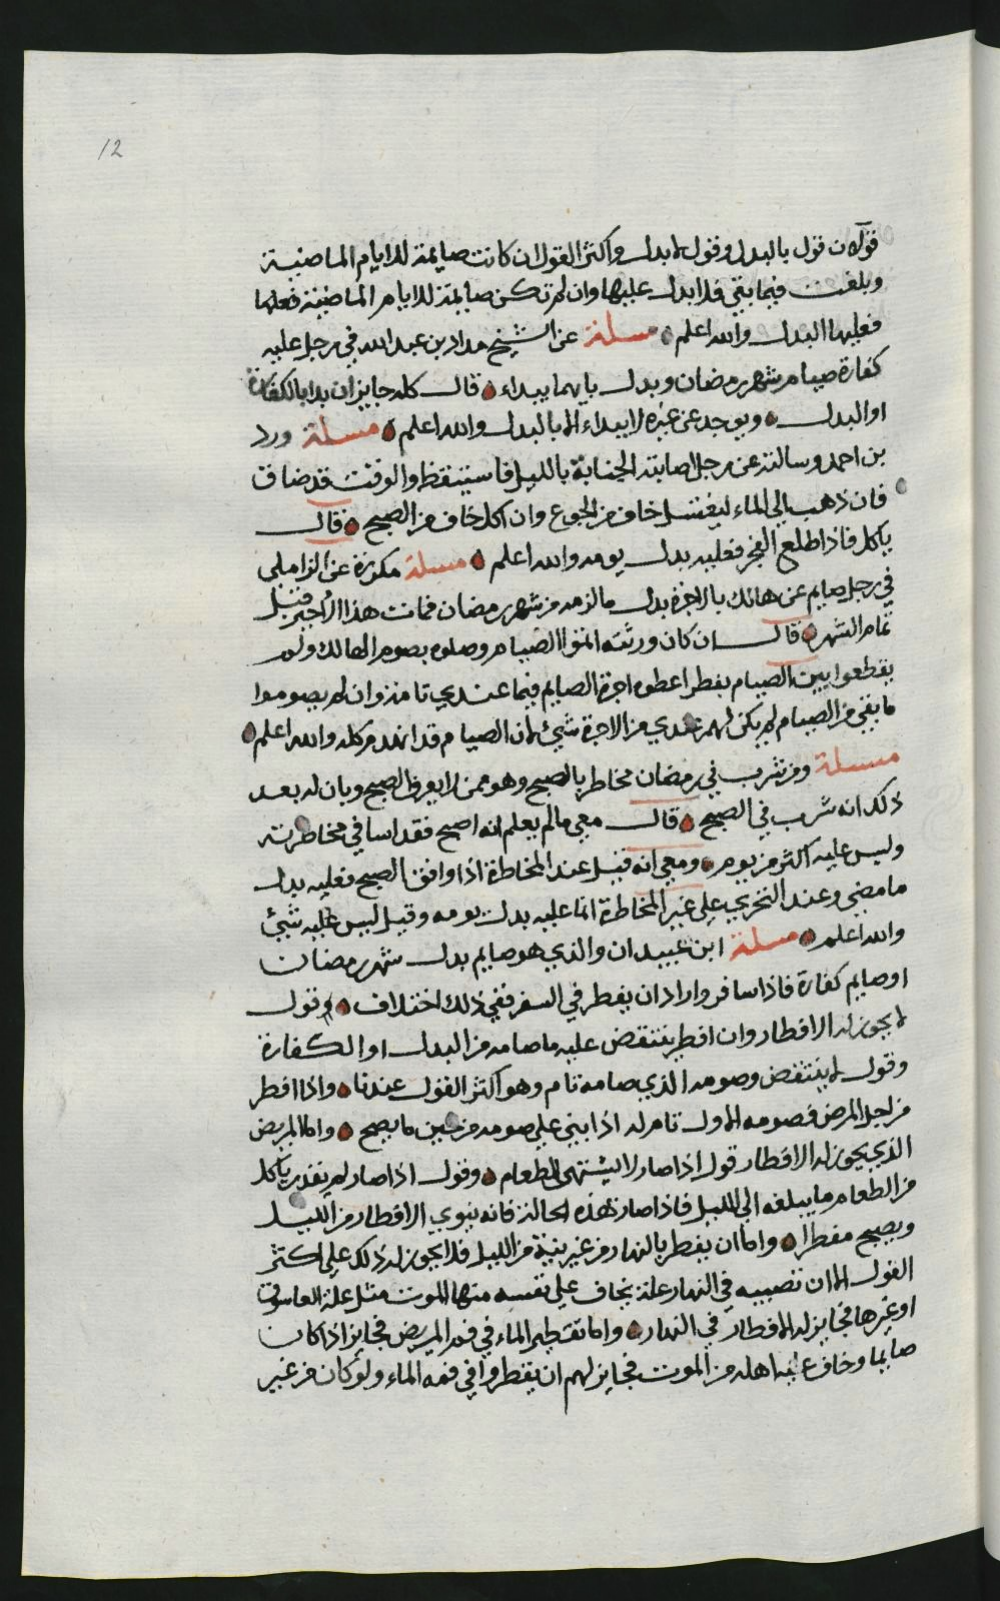 12
قولان قول بالبدل وقول لا بدل واكثر القول ان كانت صايمة للايام الماضية
وبلغت فيما بقي فلا بدل عليها وان لم تكن صايمة للايام الماضية فعليها
فعليها البدل والله اعلم مسئلة عن الشيخ مداد بن عبدالله في رجل عليه
كفارة صيام شهر رمضان وبدل بايهما يبداء قال كله جايز ان بدا بالكفارة
او البدل ويوجد عن غيره لا يبداء الا بالبدل والله اعلم مسئلة ورد
بن احمد وسالته عن رجل اصابته الجنابة بالليل فاستيقظ والوقت قد ضاق
فان ذهب الي الماء ليغتسل خاف من الجوع وان اكل خاف من الصبح قال
ياكل فاذا طلع الفجر فعليه بدل يومه والله اعلم مسئلة مكررة عن الزاملي
في رجل صايم عن هالك بالاجرة بدل ما لزمه من شهر رمضان فمات هذا الاجير قبل
تمام الشهر قال ان كان ورثته اتموا الصيام وصلوه بصوم الهالك ولم
يقطعوا بين الصيام بفطر اعطوه اجرة الصايم فيما عندي تامة وان لم يصوموا
ما بقي من الصيام لم يكن لهم عندي من الاجرة شيئ لان الصيام قد انهدم كله والله اعلم
مسئلة ومن شرب في رمضان مخاطر بالصبح وهو ممن لا يعرف الصبح وبان له بعد
ذلك انه شرب في الصبح قال معي ما لم يعلم انه اصبح فقد اسا في مخاطرته
وليس عليه اكثر من يوم ومعي انه قيل عند المخاطرة اذا وافق الصبح فعليه بدل
ما مضي وعند التحري علي غير المخاطرة انما عليه بدل يومه وقيل ليس عليه شيئ
والله اعلم مسئلة ابن عبيدان والذي هو صايم بدل شهر رمضان
او صايم كفارة فاذا سافر واراد ان يفطر في السفر ففي ذلك اختلاف وقول
لا يجوز له الافطار وان افطر ينتقض عليه ما صامه من البدل او الكفارة
وقول لا ينتقض وصومه الذي صامه تام وهو اكثر القول عندنا واذا افطر
من اجل المرض فصومه الاول تام له اذا بني علي صومه من حين ما يصح واما المريض
الذي يجوز له الافطار قول اذا صار لا يشتهي الطعام وقول اذا صار لم يقدر ياكل
من الطعام ما يبلغه الي الليل فاذا صار بهذه الحالة فانه ينوي الافطار من الليل
ويصبح مفطرا واما ان يفطر بالنهار من غير نية من الليل فلا يجوز له ذلك علي اكثر
القول الا ان تصيبه في النهار علة يخاف علي نفسه منها الموت مثل علة
او غيرها فجايز له الافطار في النهار واما تقطير الماء في فم المريض فجايز اذا كان
صايما وخاف عليه اهله من الموت فجايز لهم ان يقطروا في فمه الماء ولو كان من غير